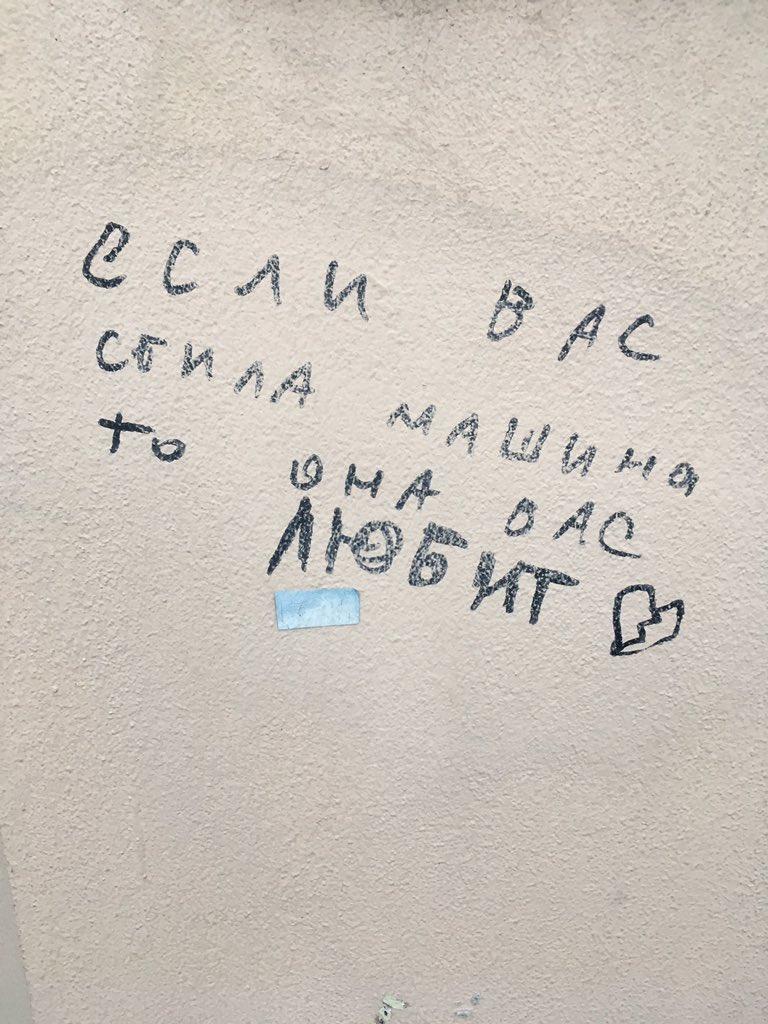 если ВАС
сбила машина
то она ВАС
ЛЮБИТ